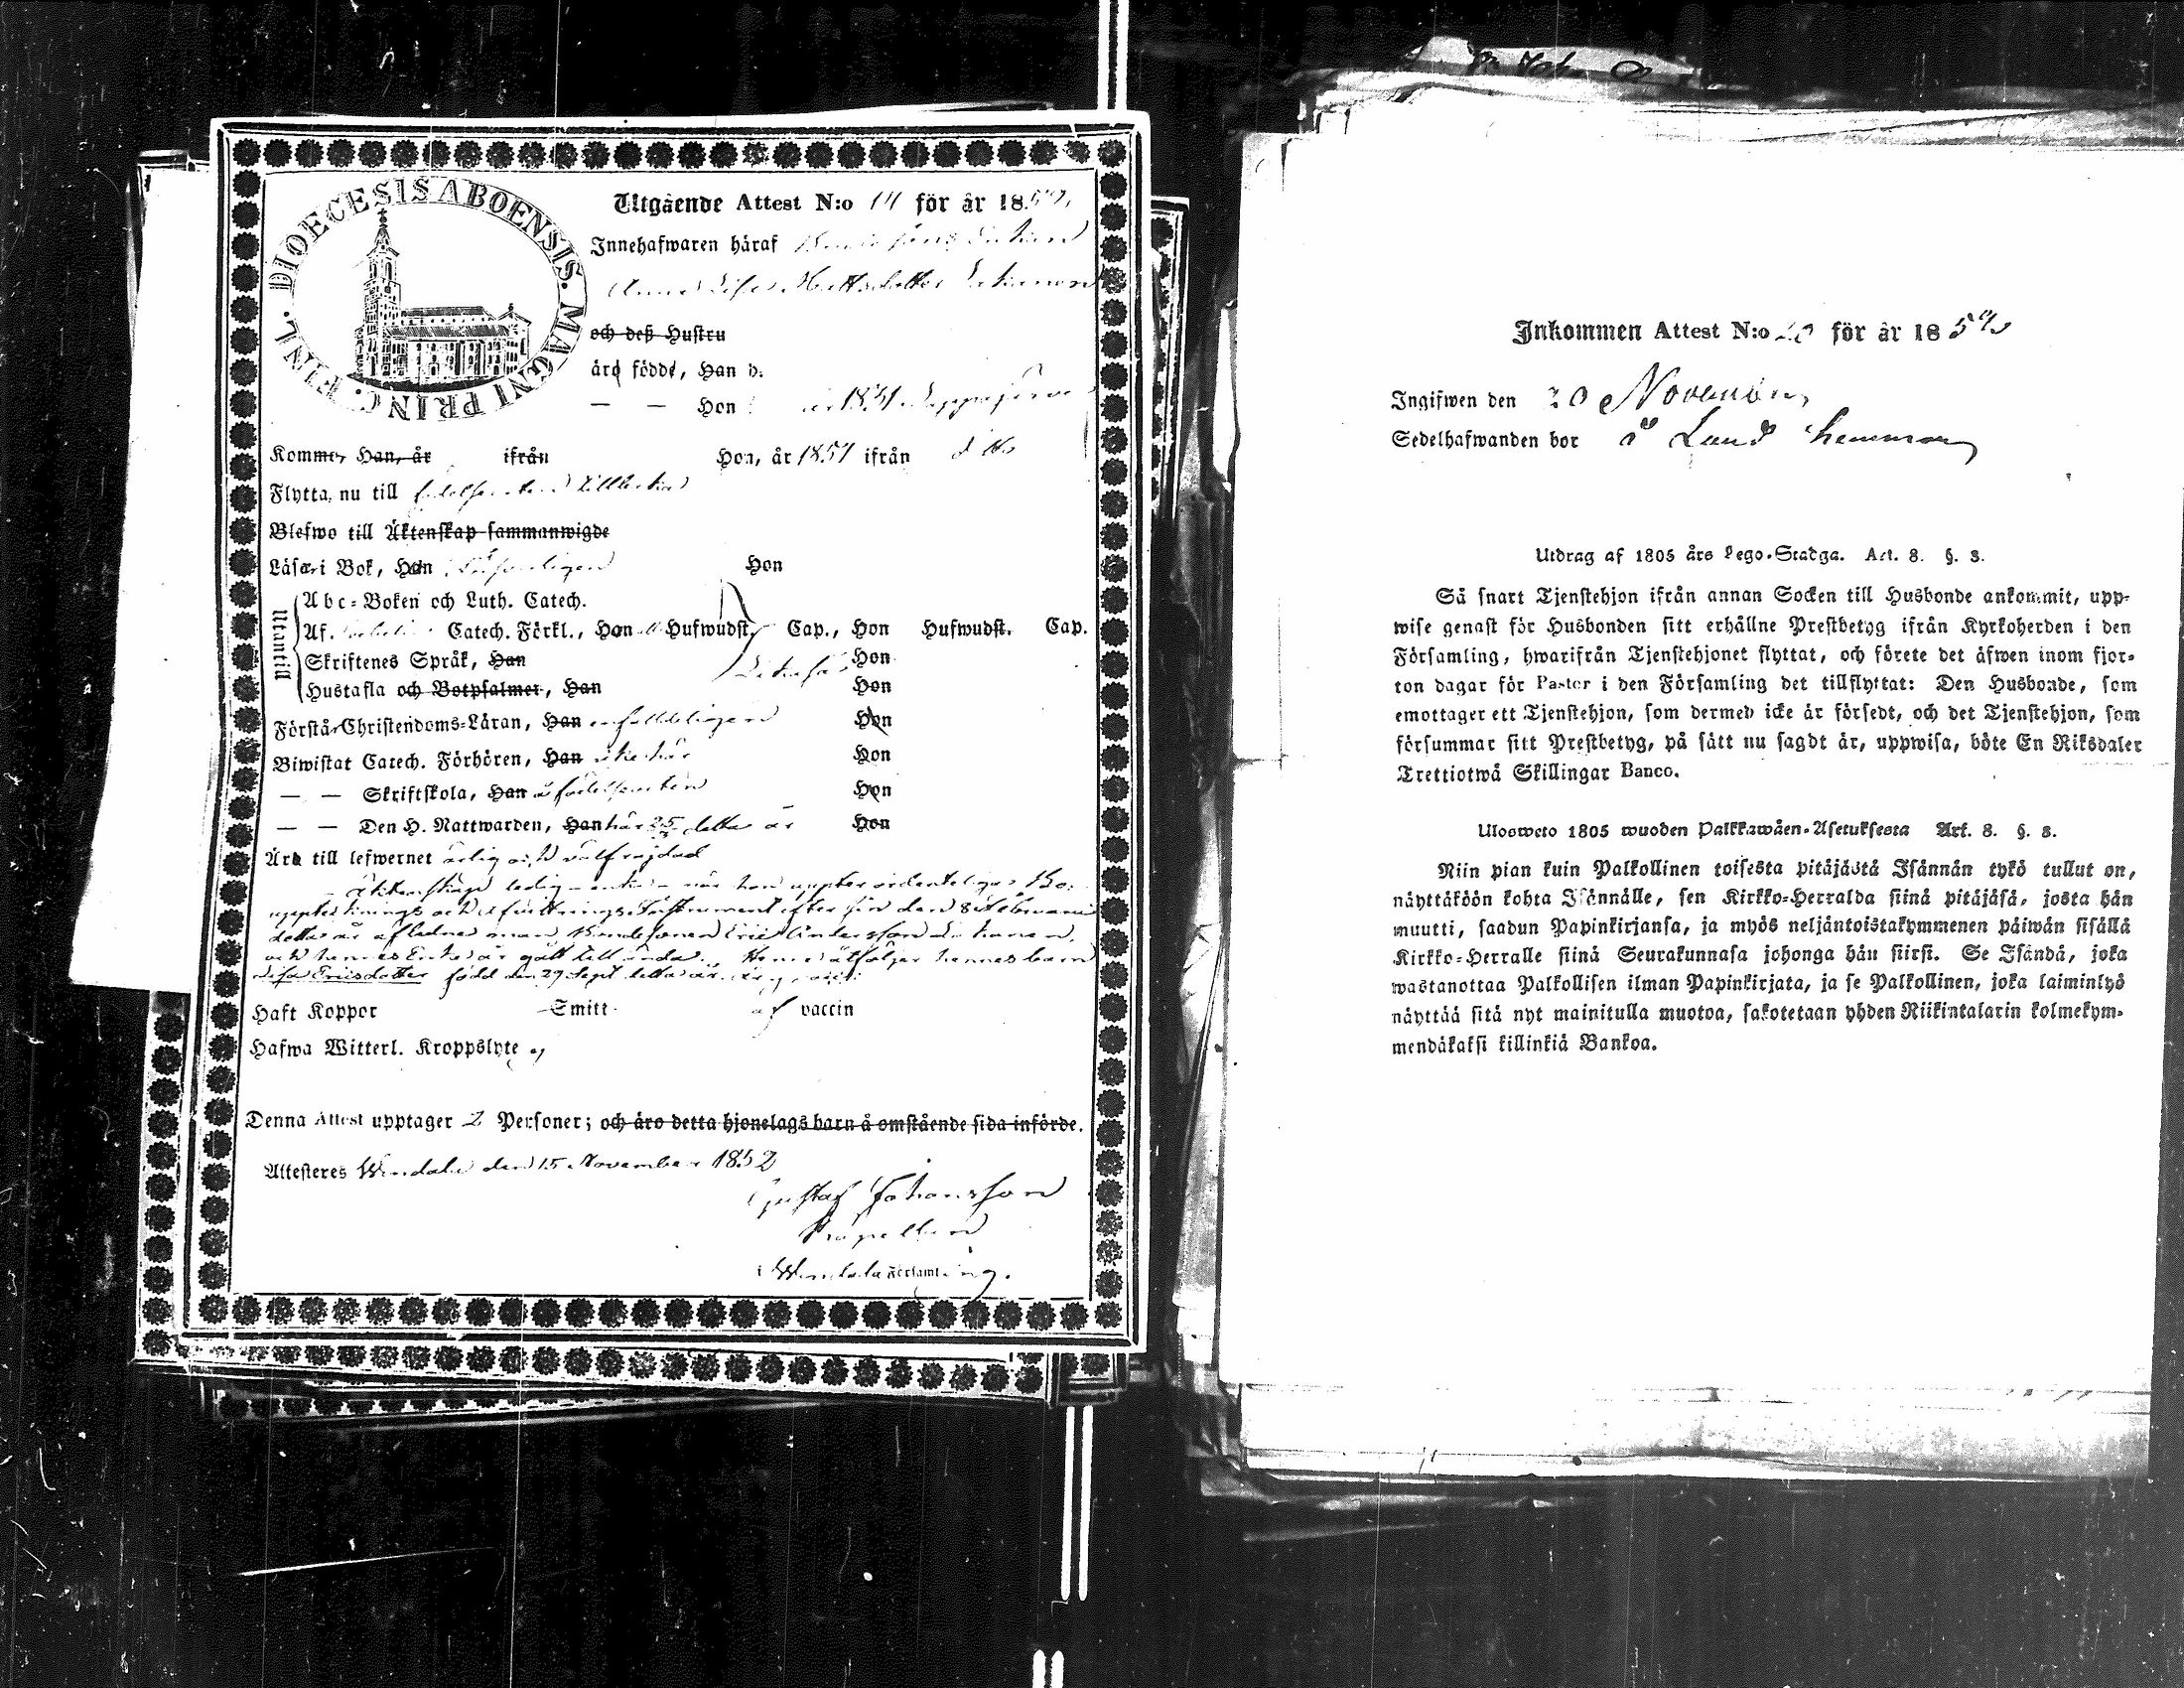 DIOECESIS ABOENSIS. MAGNI PRINC. FINL.
Utgående Attest N:o 14 för år 1852,
Innehafwaren häraf
Anna Lisa Mattsdotter
och deß Hustru
äro födde, Han d.
— — Hon 1831
Komme, Han, år ifrån Hon, år 1851 ifrån dito
Flytta, nu till födelseorten
Blefwo till Äktenskap sammanwigde
Läsa i Bok, Han Hon
Utantill
Abc-Boken och Luth. Catech.
Af. Catech. Förkl., Han Hufwudst. Cap., Hon Hufwudst. Cap.
Skriftenes Språk, Han Hon
Hustafla och Botpsalmer, Han Hon
Förstå Christendoms-Läran, Han enfaldeligen Hon
Biwistat Catech. Förhören, Han icke här Hon
— — Skriftskola, Han å födelseorten Hon
— — Den H. Nattwarden, Han här 25 detta år Hon
Äro till lefwernet ärlig och välfrejdad
Äktenskap ledig när hon uppter ordenteliga Bo-
uppteknings och afvittrings Instrument efter sin den 8
detta år afledne man Bondesonen Eric Andersson
och hennes Enkeår gått till ända. Henne åtföljer hennes barn
Lisa Ericsdotter född den 29 Sept detta år
Haft Koppor Smitt af vaccin
Hafwa Witterl. Kroppslyte ej
Denna Attest upptager 2 Personer; och äro detta hjonelags barn å omstående sida införde.
Attesteres den 15 November 1852
Gustaf Johansson
Kapellan
i Församling.
Inkommen Attest N:o för år 1852
Ingifwen den 20 November
Sedelhafwanden bor å Lund hemman
Utdrag af 1805 års Lego-Stadga. Art. 8. §. 3.
Så snart Tjenstehjon ifrån annan Socken till Husbonde ankommit, upp-
wise genast för Husbonden sitt erhållne Prestbetyg ifrån Kyrkoherden i den
Församling, hwarifrån Tjenstehjonet flyttat, och förete det äfwen inom fjor-
ton dagar för Pastor i den Församling det tillflyttat: Den Husbonde, som
emottager ett Tjenstehjon, som dermed icke är försedt, och det Tjenstehjon, som
försummar sitt Prestbetyg, på sätt nu sagdt är, uppwisa, böte En Riksdaler
Trettiotwå Skillingar Banco.
Ulosweto 1805 wuoden Palkkawäen-Asetuksesta Art. 8. §. 3.
Niin pian kuin Palkollinen toisesta pitäjästä Isännän tykö tullut on,
näyttäköön kohta Isännälle, sen Kirkko-Herralda siinä pitäjäsä, josta hän
muutti, saadun Papinkirjansa, ja myös neljäntoistakymmenen päiwän sisällä
Kirkko-Herralle siinä Seurakunnasa johonga hän siirsi. Se Isändä, joka
wastanottaa Palkollisen ilman Papinkirjata, ja se Palkollinen, joka laiminlyö
näyttää sitä nyt mainitulla muotoa, sakotetaan yhden Riikintalarin kolmekym-
mendäkaksi killinkiä Bankoa.